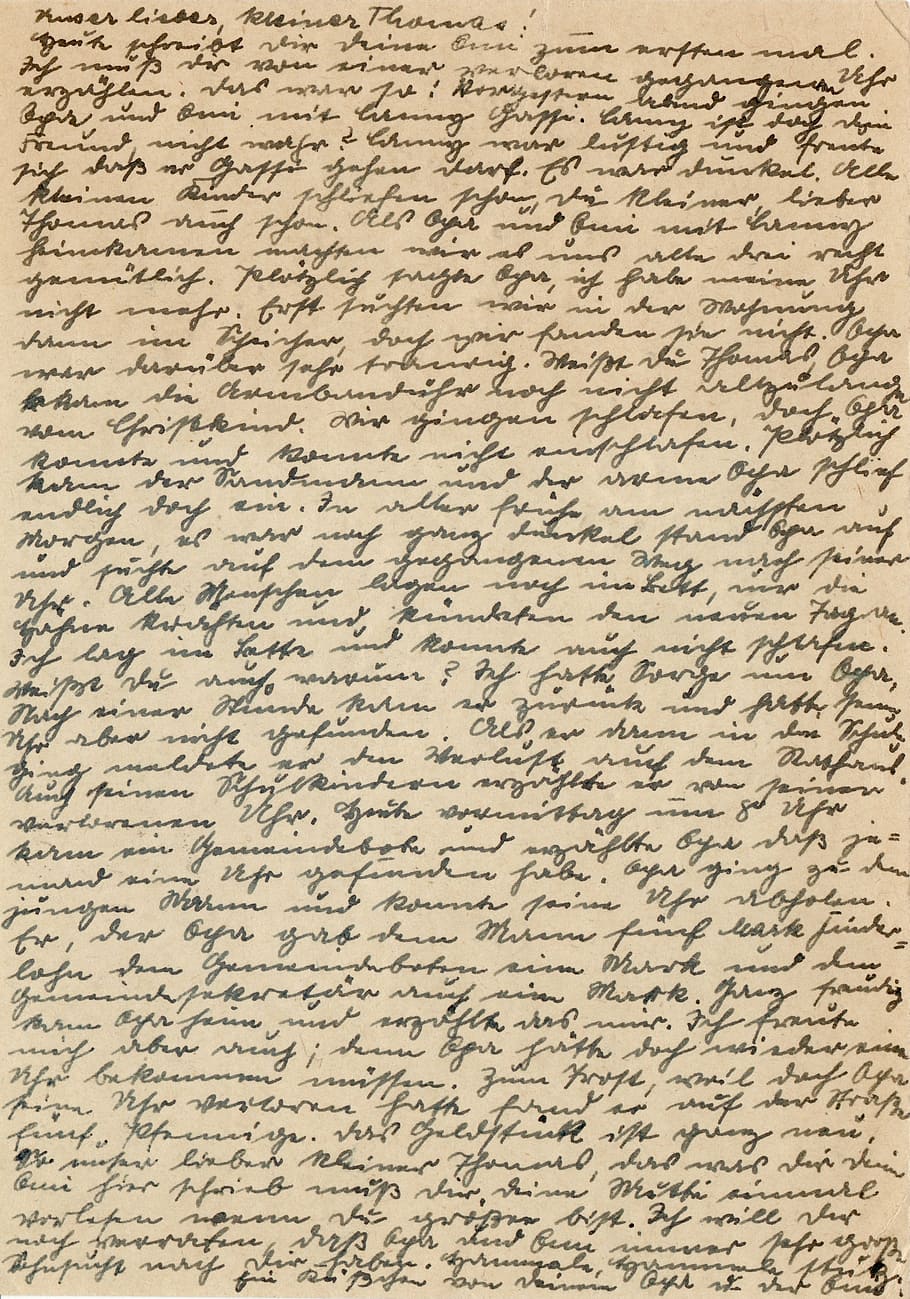 Unser lieber, kleiner Thomas!
Heute schreibt Dir deine Omi zum ersten mal.
Ich muß dir von einer verloren gegangenen Uhr
erzählen. Das war so: Vorgestern abend gingen
Opa und Omi mit Lanny Gassi. Lanny ist doch dein
Freund, nicht wahr? Lanny war lustig und freute
sich daß er Gassi gehen darf. Es war dunkel. Alle
kleinen Kinder schliefen schon, du kleiner, lieber
Thomas auch schon. Als Opa und Omi mit Lanny
heimkamen machten wir es uns alle drei recht
gemütlich. Plötzlich sagte Opa, ich habe meine Uhr
nicht mehr. Erst suchten wir in der Wohnung
dann im Speicher, doch wir fanden sie nicht. Opa
war darüber sehr traurig. Weißt Du Thomas, Opa
bekam die Armbanduhr noch nicht allzulange
vom Christkind. Wir gingen schlafen, doch Opa
konnte und konnte nicht einschlafen. Plötzlich
kam der Sandmann und der arme Opa schlief
endlich doch ein. In aller frühe am nächsten
Morgen, es war noch ganz dunkel stand Opa auf
und suchte auf dem gegangenen Weg nach seiner
Uhr. Alle Menschen lagen noch im Bett, nur die
Hähne krähten und kündeten den neuen Tag an.
Ich lag im Bette und konnte auch nicht schlafen.
Weißt Du auch warum? Ich hatte Sorge um Opa.
Nach einer Stunde kam er zurück und hatte seine
Uhr aber nicht gefunden. Als er dann in die Schule
ging meldete er den Verlust auf dem Rathaus.
Auch seinen Schulkindern erzählte er von seiner
verlorenen Uhr. Heute vormittag um 8° Uhr
kam ein Gemeindebote und erzählte Opa daß je=
mand eine Uhr gefunden habe. Opa ging zu dem
jungen Mann und konnte seine Uhr abholen.
Er, der Opa gab dem Mann fünf Mark Finder=
lohn dem Gemeindeboten eine Mark und dem
Gemeindesekretär auch eine Mark. Ganz freudig
kam Opa heim und erzählte das mir. Ich freute
mich aber auch; denn Opa hätte doch wieder eine
Uhr bekommen müssen. Zum Trost, weil doch Opa
seine Uhr verloren hatte fand er auf der Straße
fünf Pfennige. Das Geldstück ist ganz neu.
So unser lieber kleiner Thomas, das was dir deine
Omi hier schrieb muß dir deine Mutti einmal
vorlesen wenn du größer bist. Ich will Dir
noch verraten, daß Opa und Omi immer sehr große
Sehnsucht nach Dir haben. Hammele, Hammele
Ein Küßchen von deinem Opa u. der Omi.